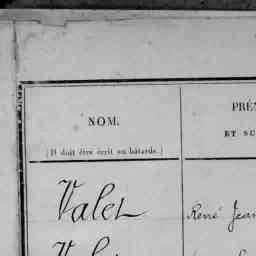 NOM.
(Il doit être écrit en bâtarde.)
PRÉN
ET SU
Valet
René Jean